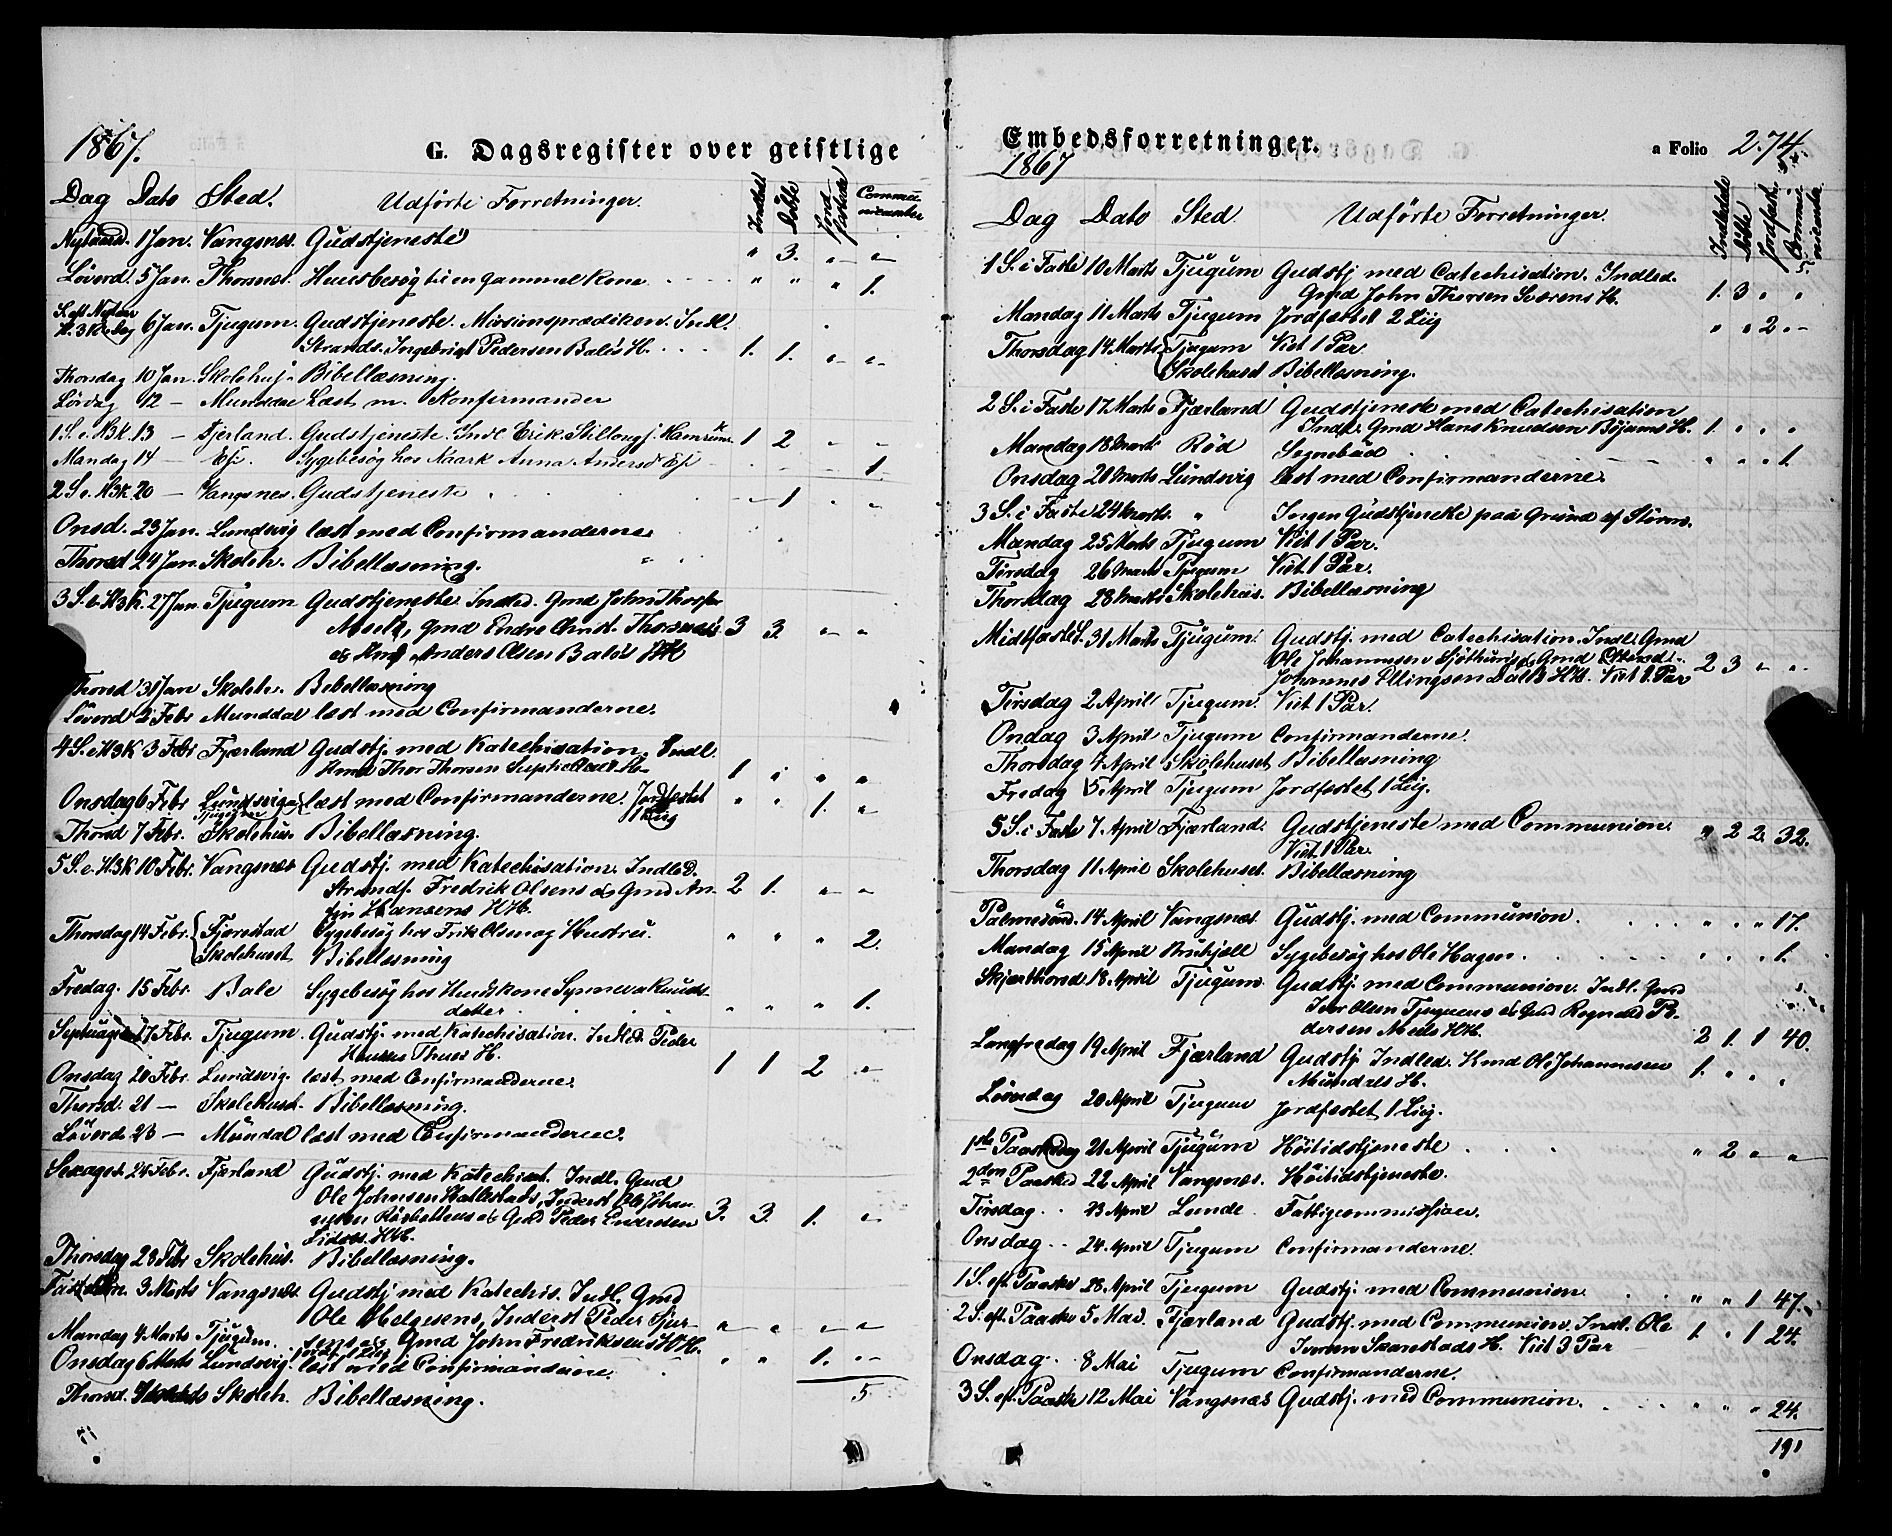 1867.
G. Dagsregister over geistlige
Dag Dato Sted. Udførte Forretninger. Indled. Døbte Jordfæstede Communicanter
Nytaarsd. 1 Jan. Vangsnes. Gudstjeneste " 3. " "
Løverd 5 Jan. Thorsnes. Huusbesøg til en gammel Kone " " " 1.
S. eft. Nytaar H. 3 K. Dag 6 Jan. Tjugum. Gudstjeneste. Missionsprædiken. Indl.
Strands. Ingebrigt Pedersen Baløs H. 1. 1. " "
Thorsdag 10 Jan. Skolehus. Bibellæsning.
Lørdag 12 — Munddal Læst m. Konfirmander
1 S. e. H3K. 13 — Fjerland. Gudstjeneste. Indl Erik 1 2 " "
Mandag 14 — Sygebesøg hos Anna 1
2 S. e. H3K. 20 — Vangsnes. Gudstjeneste " 1 " "
Onsd. 23 Jan. Lundsvig læst med Confirmanderne.
Thorsd 24 Jan. Skoleh. Bibellæsning.
3 S. e. H3K. 27 Jan. Tjugum Gudstjeneste Indled. Gmd John
Gmd Endre Christ. Thorsnæs 3 3. " "
og Kmd Anders Olsen Baløs HH
Thorsd 31 Jan Skoleh. Bibellæsning
Løverd 2 Febr Munddal læst med Confirmanderne.
4 S. e H3K 3 Febr Fjærland Gudstj. med Katechisation. Indl.
Thor Thorsen H. 1 1 " "
Onsdag 6 Febr Lundsvig læst med Confirmanderne. Jordfæstet " " 1. "
Tjugum 1 Liig
Thorsd 7 Febr. Skolehus. Bibellæsning.
5 S. e. H3K 10 Febr. Vangsnæs Gudstj. med Katechisation. Indled.
Strands. Fredrik Olsens og Gmd An- 2 1. " "
fin Hansens HH.
Thorsdag 14 Febr. Fjærestad Sygebesøg hos Erik Olsen og Hustru. " " " 2.
Skolehuset Bibellæsning
Fredag. 15 Febr. Bale Sygebesøg hos Synneva Knuds-
datter " " " 1.
Septuages 17 Febr. Tjugum. Gudstj. med Katechisation. Indled. Peder
Thues H. 1 1 2 "
Onsdag 20 Febr. Lundsvig. læst med Confirmanderne.
Thorsd. 21 — Skolehuset. Bibellæsning.
Løverd 23 — Mundal læst med Confirmanderne.
Sexages. 24 Febr. Fjærland Gudstj. med Katechisat. Indl. Gmd
Ole Johnsen Inderst Ole Johan-
nesen og Gmd Peder Endresen 3. 3. 1. "
HH.
Thorsdag 28 Febr Skolehus. Bibellæsning.
Fastelavn. 3 Marts Vangsnæs. Gudstj med Katechis. Indl. Gmd
Ole Helgesens, Inderst Peder
Mandag 4 Marts Tjugum. og Gmd John Fredriksens HH. " " " "
Onsdag 6 Marts Lundsvig. læst med Confirmanderne. " " 1. "
Thorsd. Marts Skoleh. Bibellæsning. 5
Embedsforretninger.
a Folio 274
1867
Dag Dato Sted. Udførte Forretninger. Indledede Døbte Jordfæst. Communicanter
1 S. i Faste 10 Marts Tjugum Gudstj med Catechisation. Indled.
Gmd John Thorsen Sværens H. 1. 3 " "
Mandag 11 Marts Tjugum Jordfæstet 2 Liig " " 2 "
Thorsdag 14 Marts Tjugum Viet 1 Par
Skolehuset Bibellæsning.
2 S. i Faste 17 Marts Fjærland Gudstjeneste med Catechisation
Indl. Gmd Hans Knudsen Bøjums H. 1. " " "
Mandag 18 Marts Rød Sognebud " " " 1.
Onsdag 20 Marts Lundsvig læst med Confirmanderne.
3 S. i Faste 24 Marts. " Ingen Gudstjeneste paa Grund af Storm.
Mandag 25 Marts Tjugum Viet 1 Par.
Tirsdag 26 Marts Tjugum Viet 1 Par.
Thorsdag 28 Marts Skolehus. Bibellæsning
Midtfaste S. 31 Marts Tjugum. Gudstj. med Catechisation. Indl. Gmd
Ole Johannesen og Gmd
Johannes Ellingsen HH. Viet 1 Par 2 3 " "
Tirsdag 2 April Tjugum. Viet 1 Par.
Ondag 3 April Tjugum Confirmanderne.
Thorsdag 4 April Skolehuset Bibellæsning
Fredag 5 April Tjugum Jordfæstet 1 Liig.
5 S. i Faste 7 April Fjærland. Gudstjeneste med Communion. " 2 2 32.
Viet 1 Par.
Thorsdag 11 April Skolehuset. Bibellæsning
Palmesønd. 14 April Vangsnæs. Gudstj. med Communion. " " " 17.
Mandag 15 April Sygebesøg hos Ole Hagen. 1.
Skjærthorsd 18 April Tjugum Gudstj. med Communion. Indl. Gmd
Iver Olsen Tjugums og Gmd Pe-
dersen HH. 2 1. 1 40.
Langfredag 19 April Fjærland Gudstj Indled. Kmd Ole Johannesen 1. " " "
Mundals H.
Løverdag 20 April Tjugum Jordfæstet 1 Liig.
1ste Paaskedag 21 April Tjugum Høitidstjeneste " 2 " "
2den Paasked 22 April Vangsnæs. Høitidstjeneste.
Tirsdag 23 April Lunde. Fattigcommission.
Onsdag 24 April Tjugum Confirmanderne.
1 S. eft. Paaske 28 April Tjugum Gudstj. med Communion " " 1 47.
2 S. eft. Paaske 5 Mai. Fjærland Gudstj. med Communion. Indl. Ole 1. " 1 24.
H. Viet 3 Par
Onsdag 8 Mai Tjugum Confirmanderne.
3 S. eft. Paaske 12 Mai Vangsnæs Gudstj. med Communion. " " " 24.
191